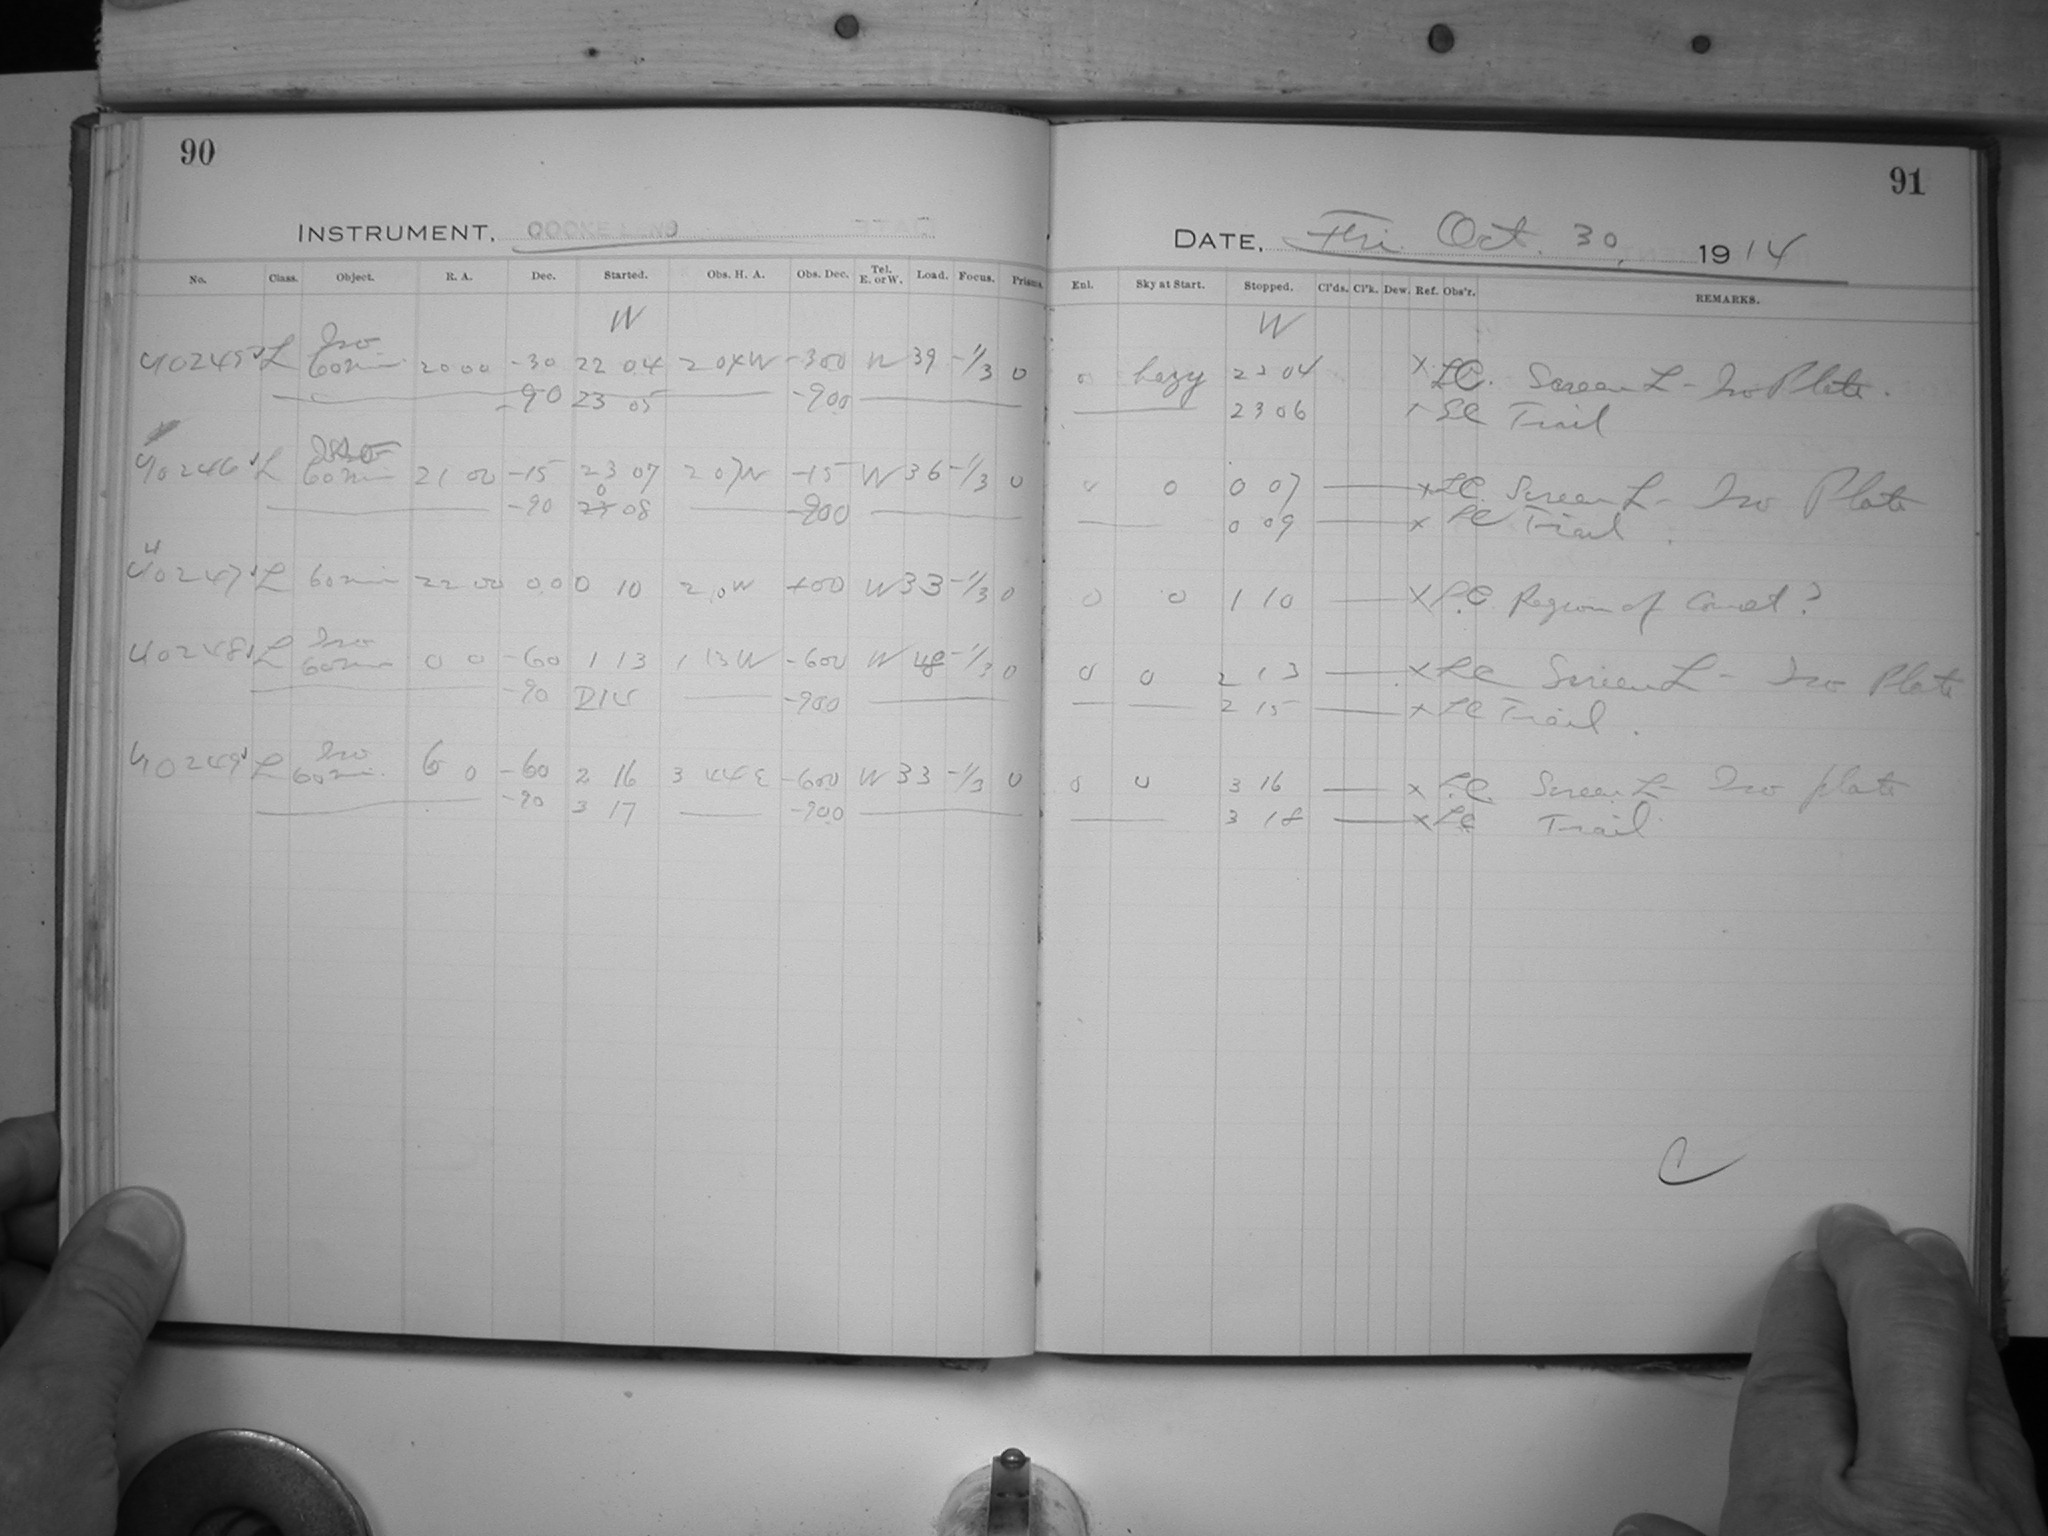 90
INSTRUMENT, COOKE LENS
No. Class. Object. R. A. Dec. Started. Obs. H. A. Obs. Dec. Tel. E. or W. Load. Focus. Prisms.
W
Iso
40245 L 60min 20 00 -30 22 04 2 04 W -30 0 W 39 -1/3 0
-90 23 05 -90 0
40246 L 60min 21 00 -15 23 07 2 07 W -15 W 36 -1/3 0
-90 0 08 -90 0
40247 L 60min 22 00 0 0 0 10 2 10 W +00 W 33 -1/3 0
Iso
40248 L 60min 0 0 -60 1 13 1 13 W -60 0 W 48 -1/3 0
-90 2 14 -90 0
Iso
40249 L 60min. 6 0 -60 2 16 3 44 E -60 0 W 33 -1/3 0
-90 3 17 -90 0
91
DATE, Fri. Oct. 30, 1914
Enl. Sky at Start. Stopped. Cl'ds. Cl'k. Dew. Ref. Obs'r. REMARKS.
W
0 hazy 23 04 x LC. Screen L - Iso Plate.
23 06 LC Trail
0 0 0 07 x LC. Screen L - Iso Plate
0 09 x LC Trail.
0 0 1 10 x LC. Region of Comet?
0 0 2 13 x LC Screen L - Iso Plate
2 15 x LC Trail.
0 0 3 16 x LC. Screen L - Iso plate
3 18 x LC Trail.
C